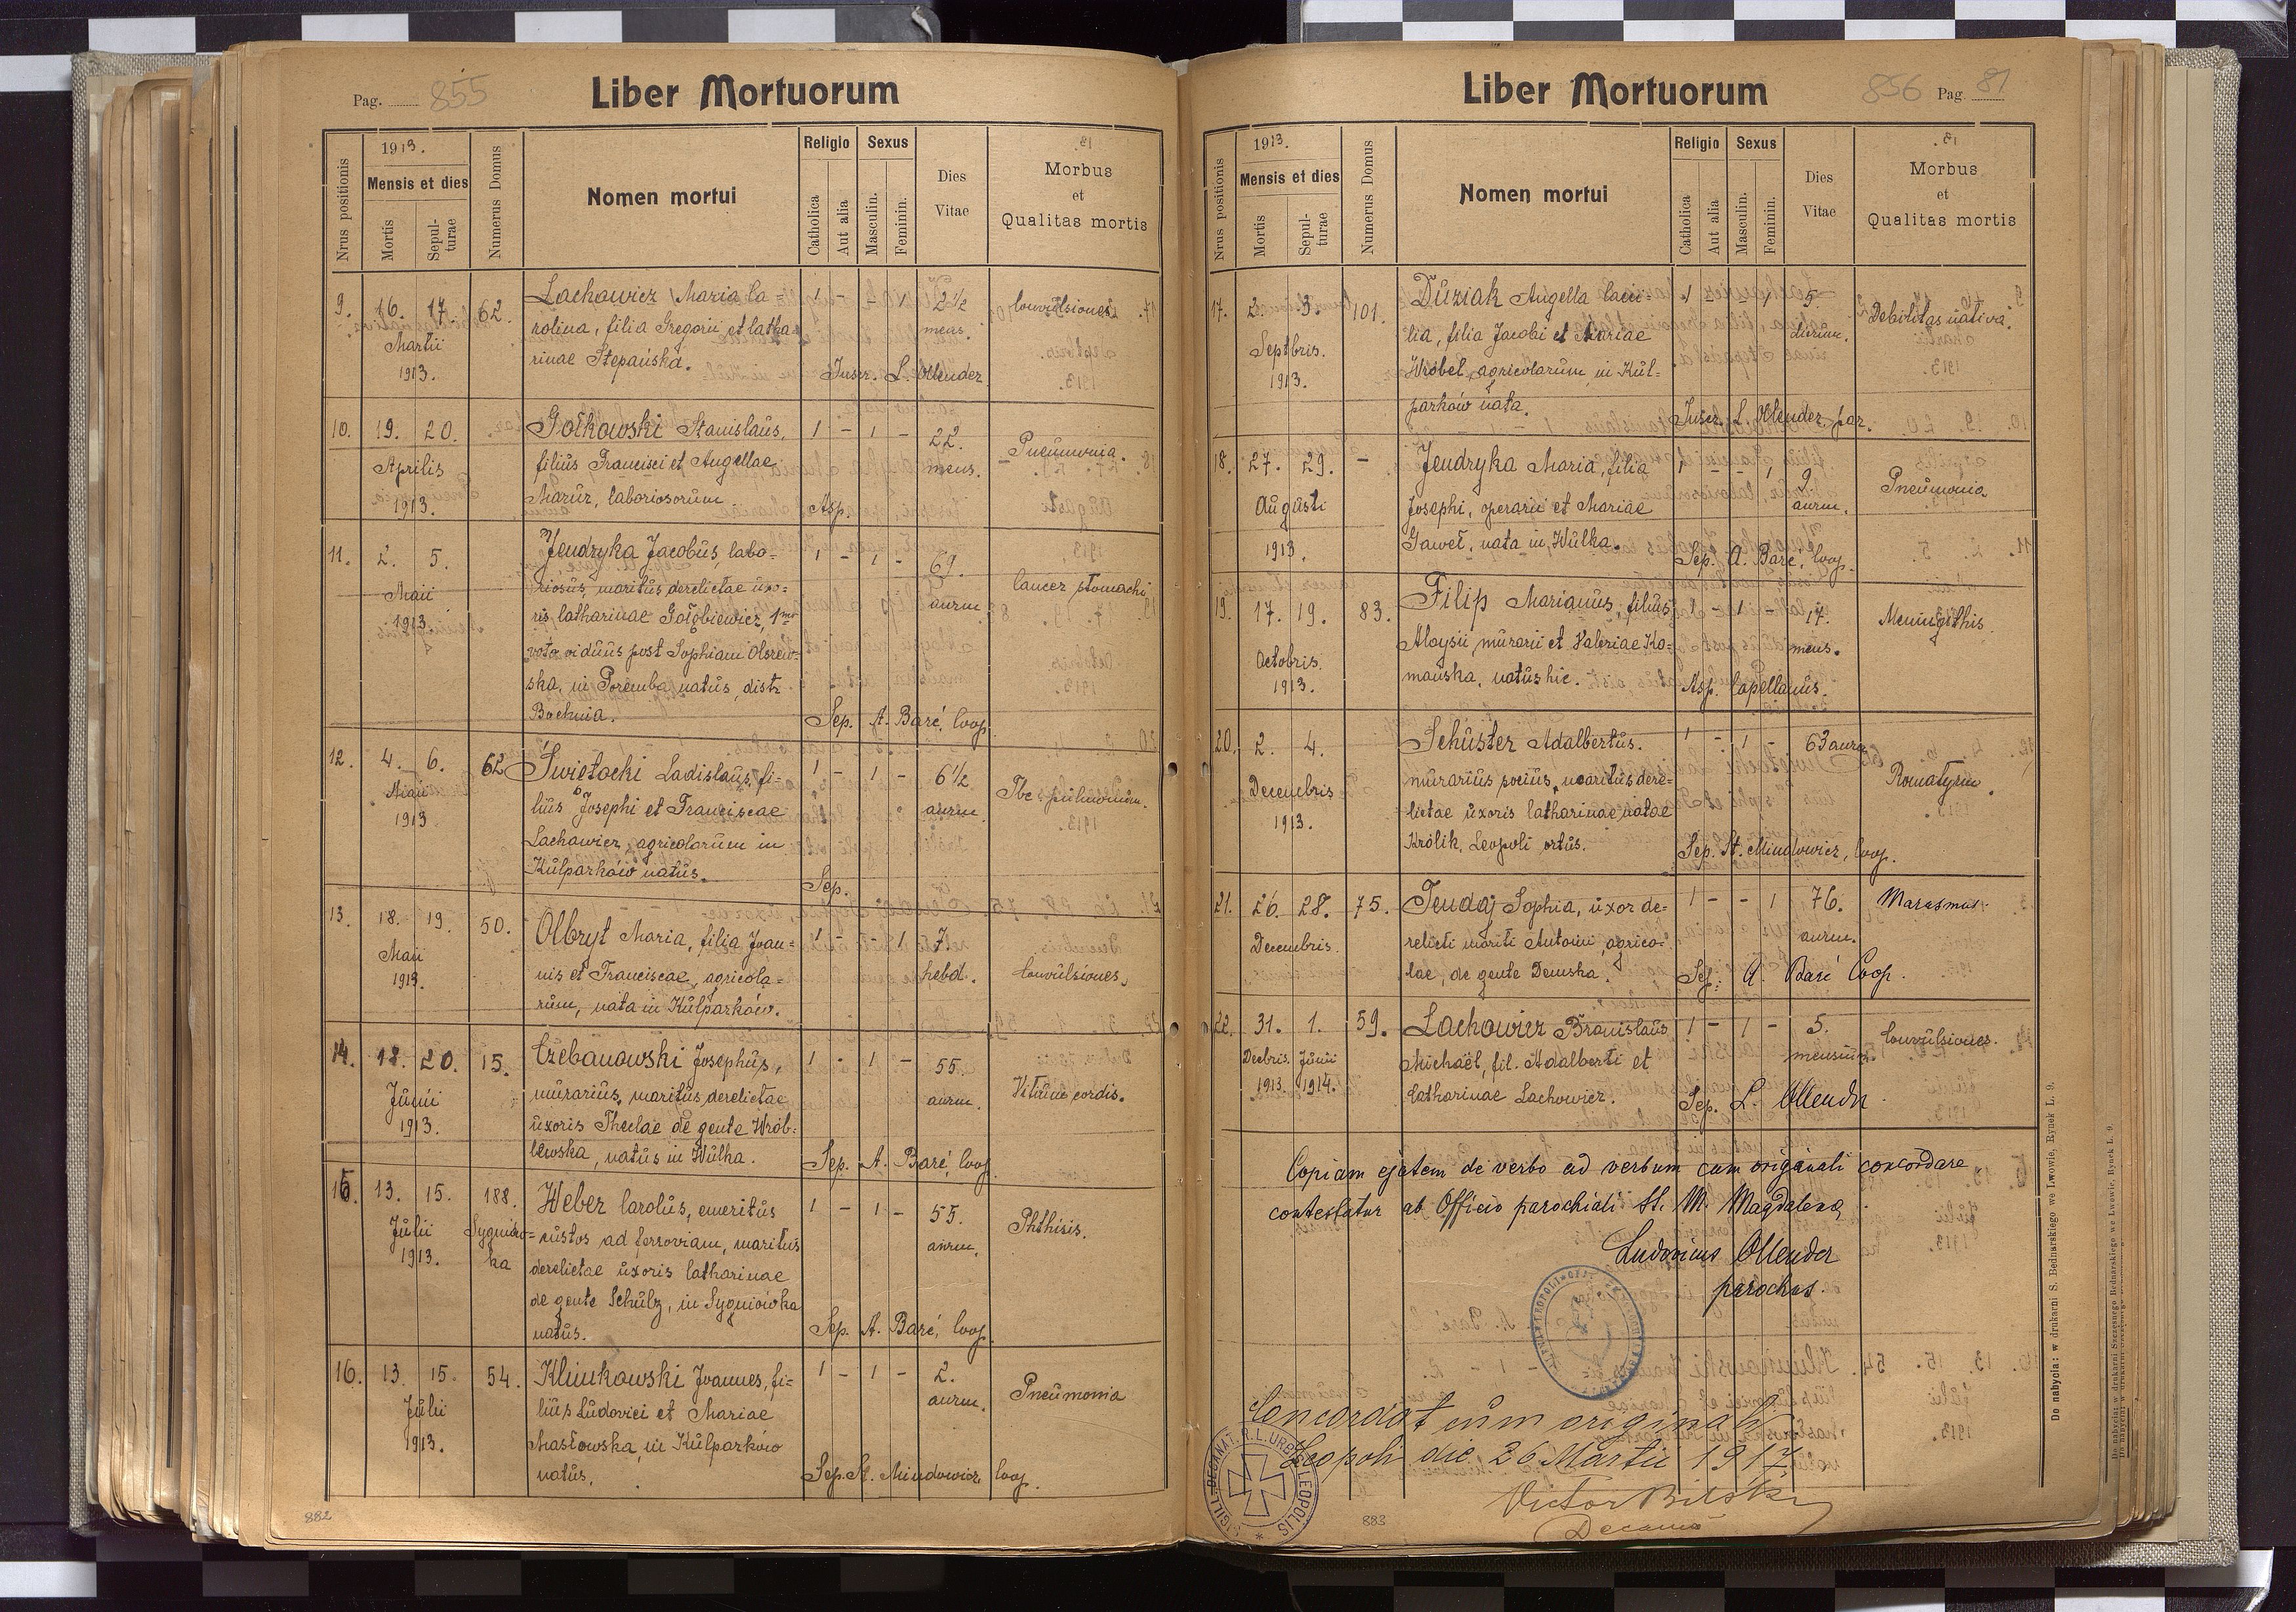 Pag. 855
Liber Mortuorum
Nrus positionis
1913.
Mensis et dies
Mortis
Sepulturae
Numerus Domus
Nomen mortui
Religio
Catholica
Aut alia
Sexus
Masculin.
Feminin.
Dies Vitae
Morbus et Qualitas mortis
9. 16. 17. 62. Lachowicz Maria Ca- 1 - - 1 2 1/2 Convulsiones
Martii rolina, filia Gregorii et Catha- mens.
1913. rinae Stepańska. Inscr. L. Ollender
10. 19. 20. Gołkowski Stanislaus, 1 - 1 - 22. Pneumonia.
Aprilis filius Francisci et Angellae mens.
1913. Mazur, laboriosorum. Asp.
11. 2. 5. Jendryka Jacobus, labo- 1 - 1 - 69.
Maii riosus, maritus derelictae uxo- annr. Cancer stomachi
1913. ris Catharinae Gołębiewicz, 1mo
voto viduus post Sophiam Olszew-
ska, in Poremba natus, distr.
Bochnia. Sep. A. Baré, Coop.
12. 4. 6. 62 Świetocki Ladislaus, fi- 1 - 1 - 6 1/2
Maii lius Josephi et Franciscae annr. Tbc pulmonum.
1913 Lachowicz, agricolarum in
Kulparków natus. Sep.
13. 18. 19. 50. Olbryt Maria, filia Joan- 1 - - 1 7
Maii nis et Franciscae, agricola- hebd. Convulsiones
1913. rum, nata in Kulparków.
14. 18. 20. 15. Czebanowski Josephus, 1 - 1 - 55.
Junii murarius, maritus derelictae annr. Vitium cordis.
1913. uxoris Theclae de gente Wrób-
lewska, natus in Wulka. Sep. A. Baré, Coop.
15. 13. 15. 188. Weber Carolus, emeritus 1 - 1 - 55. Phthisis.
Julii Sygniów- custos ad ferroviam, maritus annr.
1913. ka derelictae uxoris Catharinae
de gente Schulz, in Sygniówka
natus. Sep. A. Baré, Coop.
16. 13. 15. 54. Klimkowski Joannes, fi- 1 - 1 - 2. Pneumonia
Julii lius Ludovici et Mariae annr.
1913. Masłowska, in Kulparków
natus. Sep. St. Mindowicz, Coop.
882
Liber Mortuorum
856 Pag. 81
Nrus positionis
1913.
Mensis et dies
Mortis
Sepulturae
Numerus Domus
Nomen mortui
Religio
Catholica
Aut alia
Sexus
Masculin.
Feminin.
Dies Vitae
Morbus et Qualitas mortis
17. 2. 3. 101. Duziak Angella Caeci- 1 - - 1 5. Debilitas nativa.
Septbris. lia, filia Jacobi et Mariae dierum.
1913. Wróbel, agricolarum, in Kul-
parków nata. Inscr. L. Ollender, par.
18. 27. 29. - Jendryka Maria, filia 1 - - 1 2 Pneumonia
Augusti Josephi, operarii et Mariae annr.
1913. Gaweł, nata in Wulka. Sep. A. Baré, Coop.
19. 17. 19. 83. Filip Marianus, filius 1 - 1 - 17. Meningithis
Octobris. Aloysii, murarii et Valeriae Ko- mens.
1913. mańska, natus hic. Asp. Capellanus.
20. 2. 4. Schuster Adalbertus. 1 - 1 - 63 annr.
Decembris murarius socius, maritus dere-
1913. lictae uxoris Catharinae natae
Królik, Leopoli ortus. Sep. St. Mindowicz, Coop.
21. 26. 28. 75. Tendaj Sophia, uxor de- 1 - - 1 76. Marasmus.
Decembris. relicti mariti Antonii, agrico- annr.
lae, de gente Demska. Sep. A. Baré Coop.
22. 31. 1. 59. Lachowicz Bronislaus 1 - 1 - 5. Convulsiones.
Decbris. Junii Michaël, fil. Adalberti et mensium.
1913. 1914. Catharinae Lachowicz. Sep. L. Ollender
Copiam ejatem de verbo ad verbum cum originali concordare
contestatur ab Officio parochiali St. M. Magdalena
Ludovicus Ollender
parochus.
Concordat cum originali
Leopoli die 26 Martii 1917
Victor Bilski
Decanus
SIGILL. DECANAT. R. L. URBIS LEOPOLIS
883
Do nabycia: w drukarni S. Bednarskiego we Lwowie, Rynek L. 9.
Do nabycia: w drukarni Szczęsnego Bednarskiego we Lwowie, Rynek L. 9.